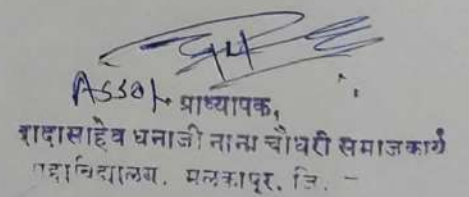 Asso. प्राध्यापक,
दादासाहेब धनाजी नाना चौधरी समाजकार्य
महाविद्यालय, मलकापूर, जि. -